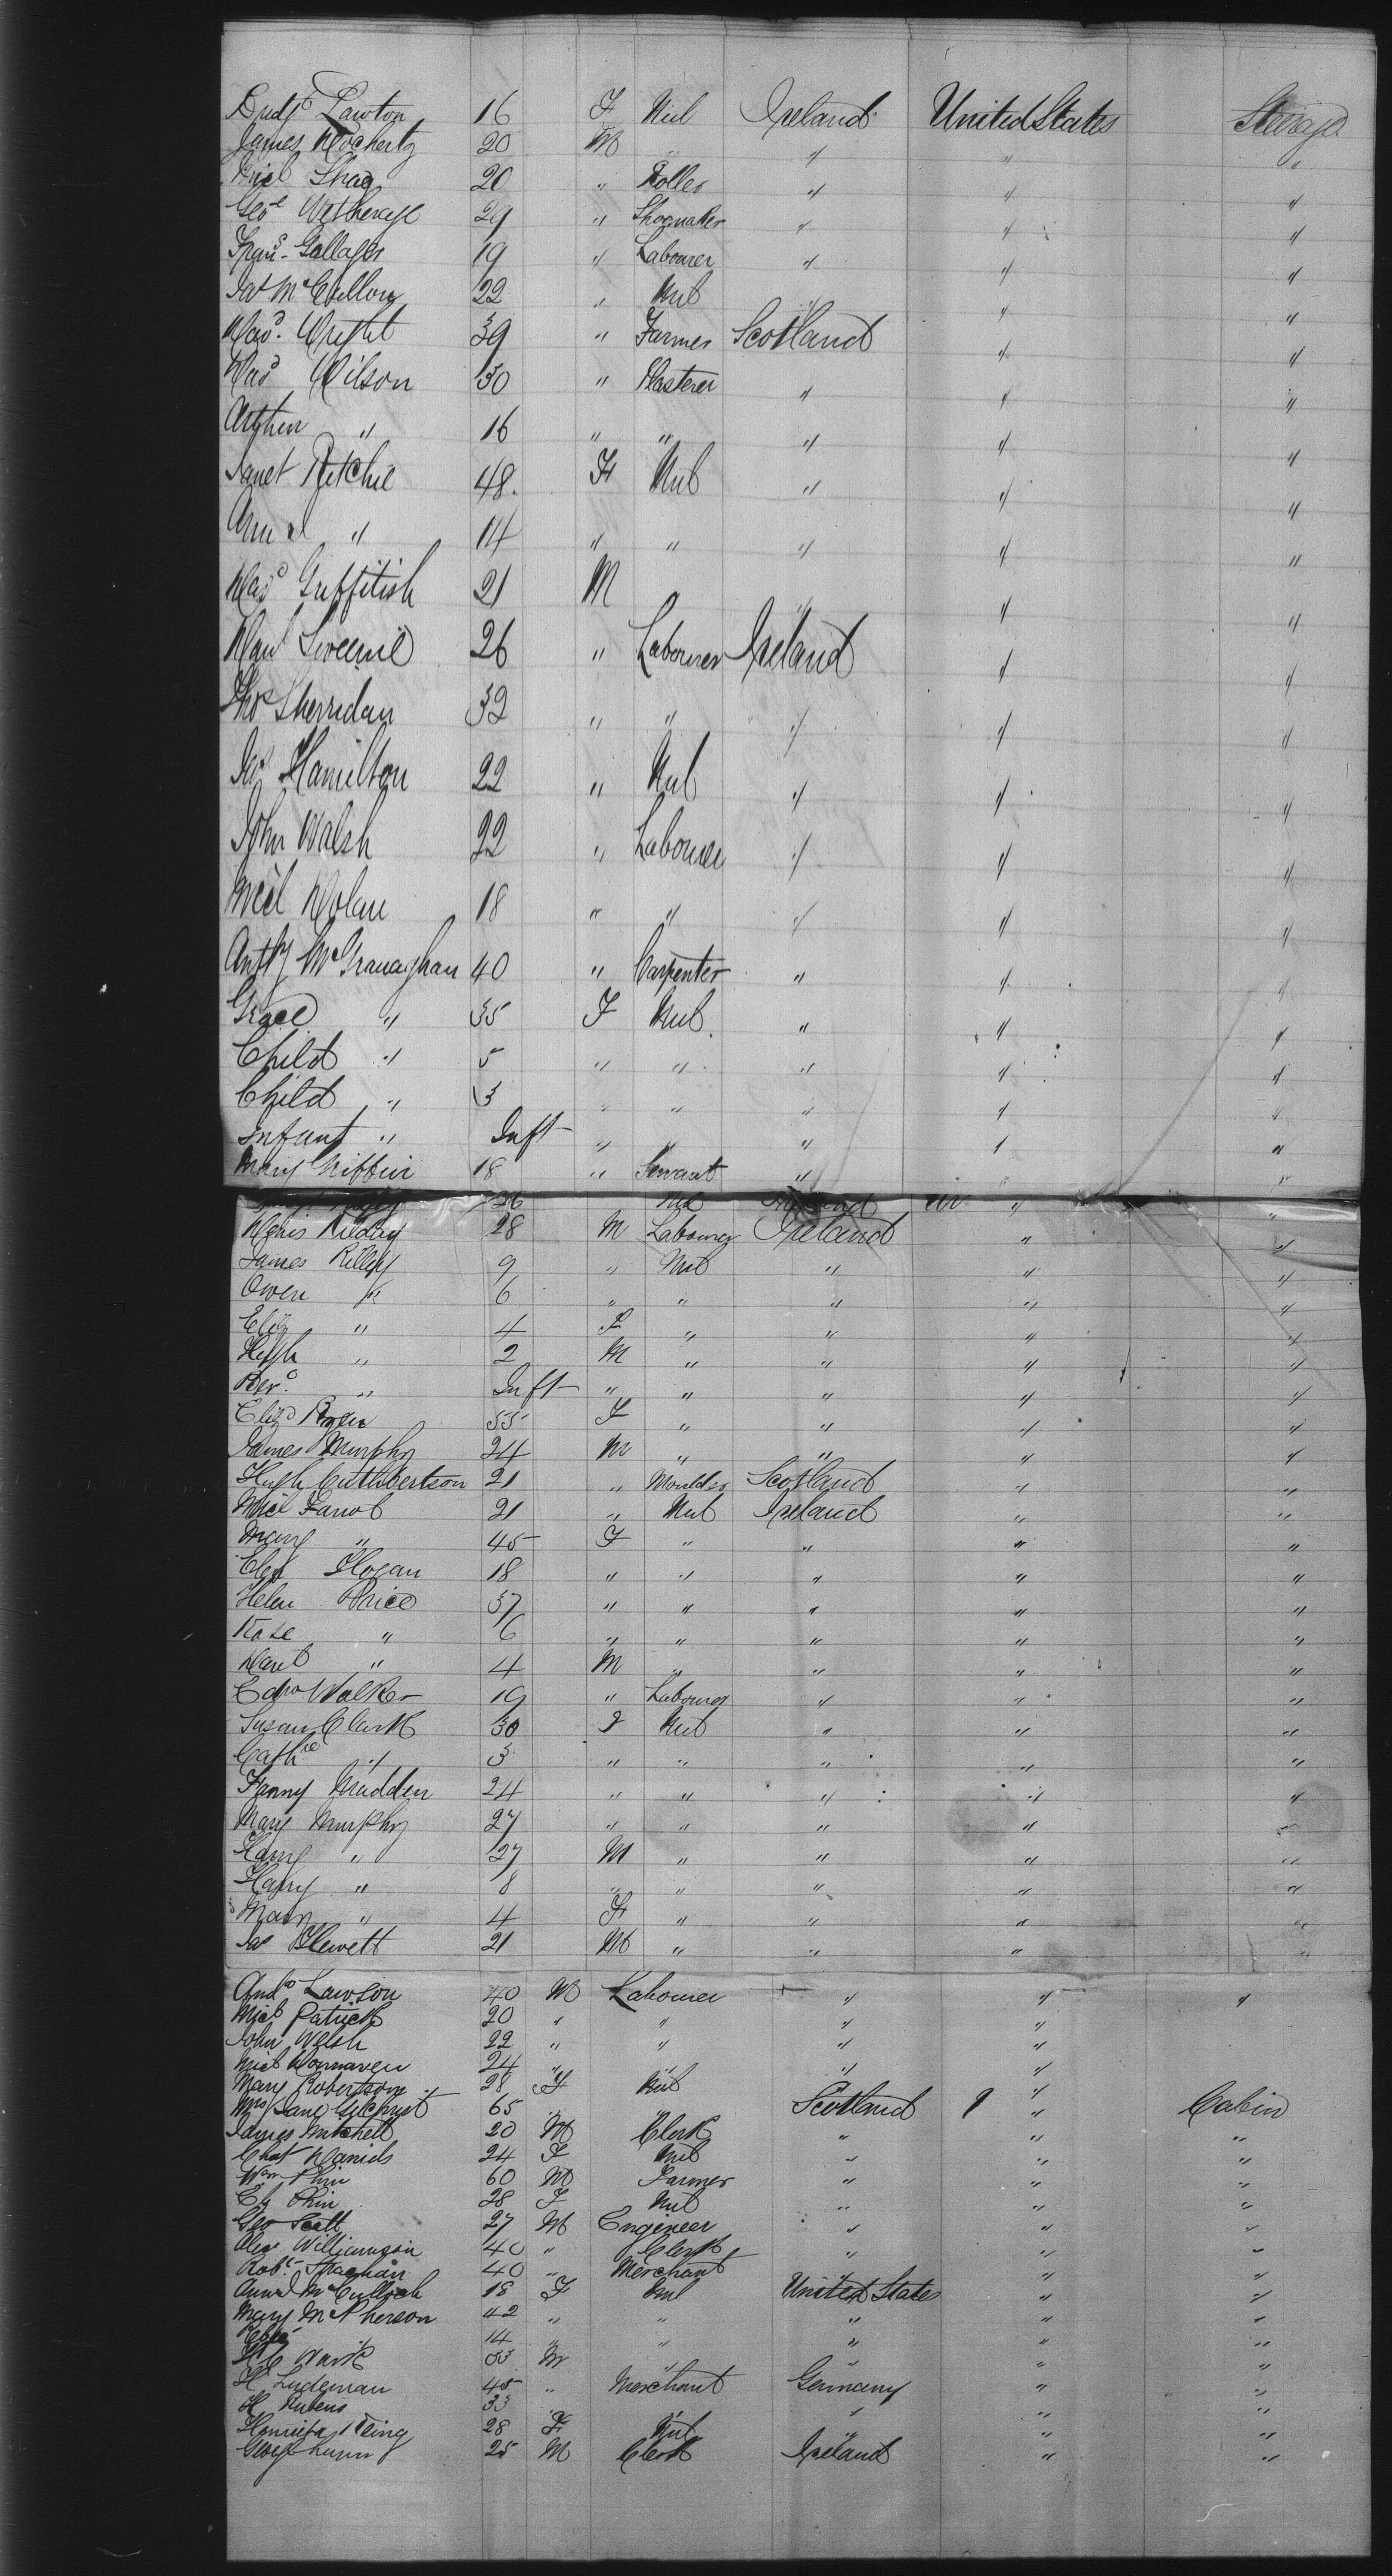 Bridgt Lawton 16 F Nil Ireland United States Steerage
James Dochertz 20 M " " " "
Micl Shag 20 " " " "
Geo 29 " Shoemaker " " "
Frans Gallager 19 " Labourer " " "
Jas McCullon 22 " Nil " " "
Davd Wright 39 " Farmer Scotland " "
Davd Wilson 30 " Plasterer " " "
Arthur " 16 " " " " "
Janet Ritchie 48 F Nil " " "
Annie " 14 " " " " "
Davd Griffitish 21 M " " "
Danl Sweenie 26 " Labourer Ireland " "
Thos Sherridan 32 " " " " "
Jas Hamilton 22 " Nil " " "
John Walsh 22 " Labourer " " "
Micl Dolan 18 " " " " "
Anthy McGranaghan 40 " Carpenter " " "
Grace " 35 F Nil " " "
Child " 5 " " " " "
Child " 3 " " " " "
Infant " Inft " " " " "
Mary Niffin 18 " Servant " " "
26 Nil "
Denis Kilday 28 M Labourer Ireland " "
James Rilley 9 " Nil " " "
Owen " 6 " " " " "
Eliz " 4 F " " " "
Hugh " 2 M " " " "
Berd " Inft " " " " "
Eliza Ryan 55 F " " " "
James Murphy 24 M " " " "
Hugh Cuthbertson 21 " Moulder Scotland " "
Micl 21 " Nil Ireland " "
Mary " 45 F " " " "
Elen Hogan 18 " " " " "
Helen Price 37 " " " " "
Rose " 6 " " " " "
Danl " 4 M " " " "
Edw Walker 19 " Labourer " " "
Susan Clark 30 F Nil " " "
Cathe " 3 " " " " "
Fanny Madden 24 " " " " "
Mary Murphy 27 " " " " "
Harry " 27 M " " " "
Harry " 8 " " " " "
Mary " 4 F " " " "
Jas Hewett 21 M " " " "
Andw Lawson 40 M Labourer " " "
Micl Patrick 20 " " " "
John Welsh 22 " " " "
Micl Donnaven 24 " " " "
Mary Robertson 28 F Nil " "
Mrs Jane Gilchrist 65 " " Scotland " Cabin
James Mitchell 20 M Clerk " " "
Chat Daniels 24 F Nil " " "
Wm Phin 60 M Farmer " " "
Phin 28 F Nil " " "
Geo Scott 27 M Engineer " " "
Alex Williamson 40 " Clerk " " "
Robt Strachan 40 " Merchant " " "
Anna McCulloch 18 F Nil United States " "
Mary McPherson 42 " " " " "
" 14 " " " " "
33 M " " " "
H Ludeman 45 " Merchant Germany " "
H Rubens 33 " " " " "
Henrietta King 28 F Nil " " "
25 M Clerk Ireland " "